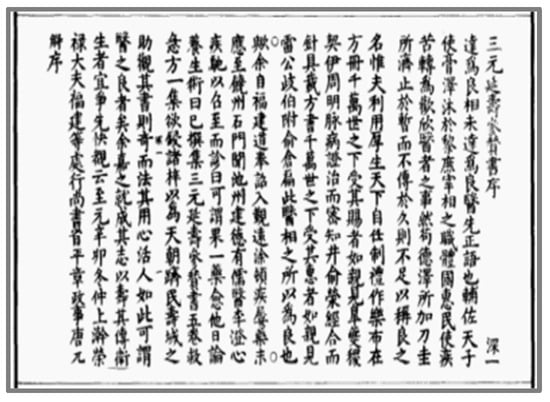 三元延壽參贊書序 深一
達爲良相未達爲良醫先正語也輔佐天子
使膏澤沐於黎庶宰相之職體國惠民使疾
苦轉爲歡欣醫者之事然苟德澤所加刀圭
所濟止於暫而不傳於久則不足以稱良之
名惟夫利用厚生天下自任制禮作樂布在
方冊千萬世之下受其賜者如親見皐夔稷
契伊周明脉病證治而審知井俞滎經合而
針具載方書千萬世之下受其惠者如親見
雷公歧伯附俞倉扁此醫相之所以爲良也
歟余自福建道奉詔入觀遠涂頓疾屢藥未
應至饒州石門聞池州建德有儒醫李澄心
疾馳以召至而診曰可謂果一藥愈他日論
養生術曰已撰集三元延壽參贊書五卷救
急方一集欲鋟諸梓以爲天朝躋民壽域之
助觀其書則奇而法其用心活人如此可謂
醫之良者矣余嘉之就成其志以壽其傳衛
生者宜爭先快觀云至元辛卯冬仲上澣榮
禄大夫福建等處行尚書省平章政事唐兀
觲序